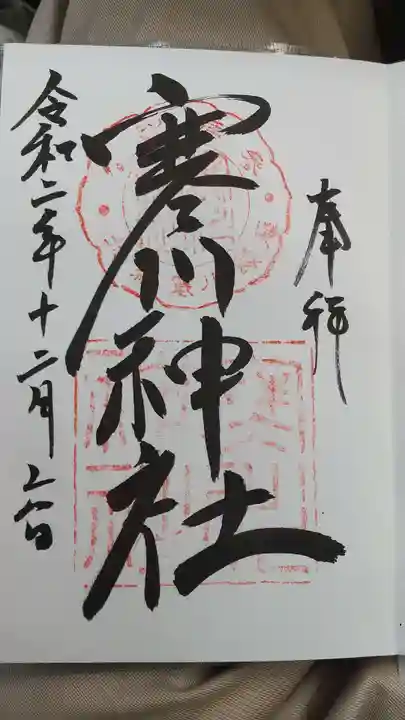 奉拝
寒川神社
令和二年十二月六日